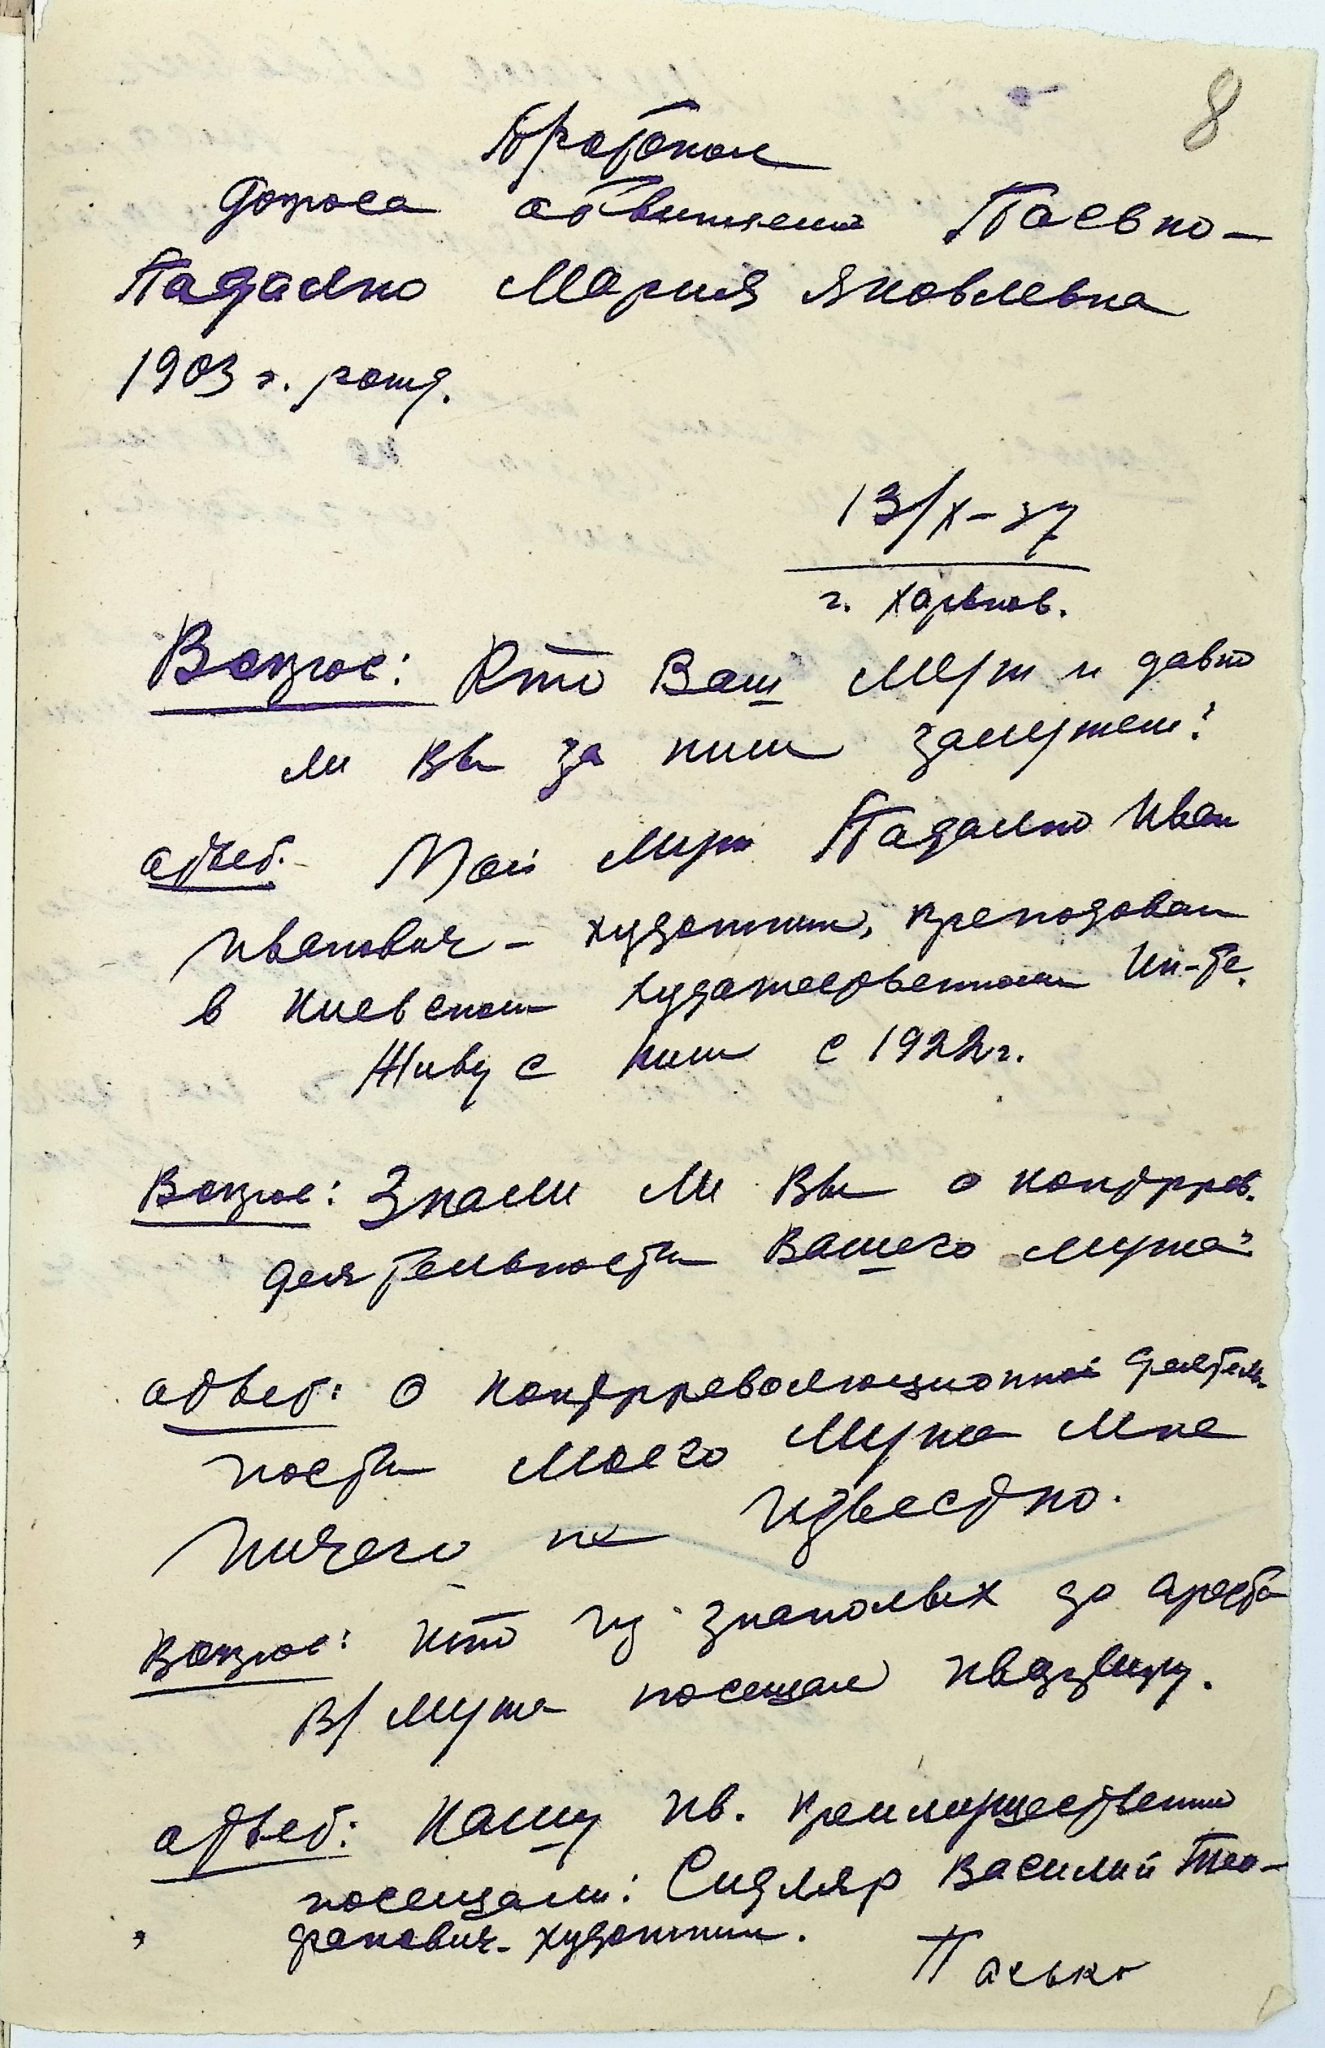 8
Протокол
допроса обвиняемой Пасько-
Падалко Мария Яковлевна
1903 г. рожд.
13/X-37
г. Харьков.
Вопрос: Кто Ваш муж и давно
ли Вы за ним замужем?
ответ. Мой муж Падалко Иван
Иванович - художник, преподавал
в Киевском художественном Ин-те.
Живу с ним с 1922 г.
Вопрос: Знали ли Вы о контррев.
деятельности Вашего мужа?
ответ: О контрреволюционной деятель-
ности моего мужа мне
ничего не известно.
Вопрос: Кто из знакомых до ареста
В/ мужа посещал квартиру.
ответ: Нашу кв. преимущественно
посещали: Сидляр Василий
художник.
Пасько